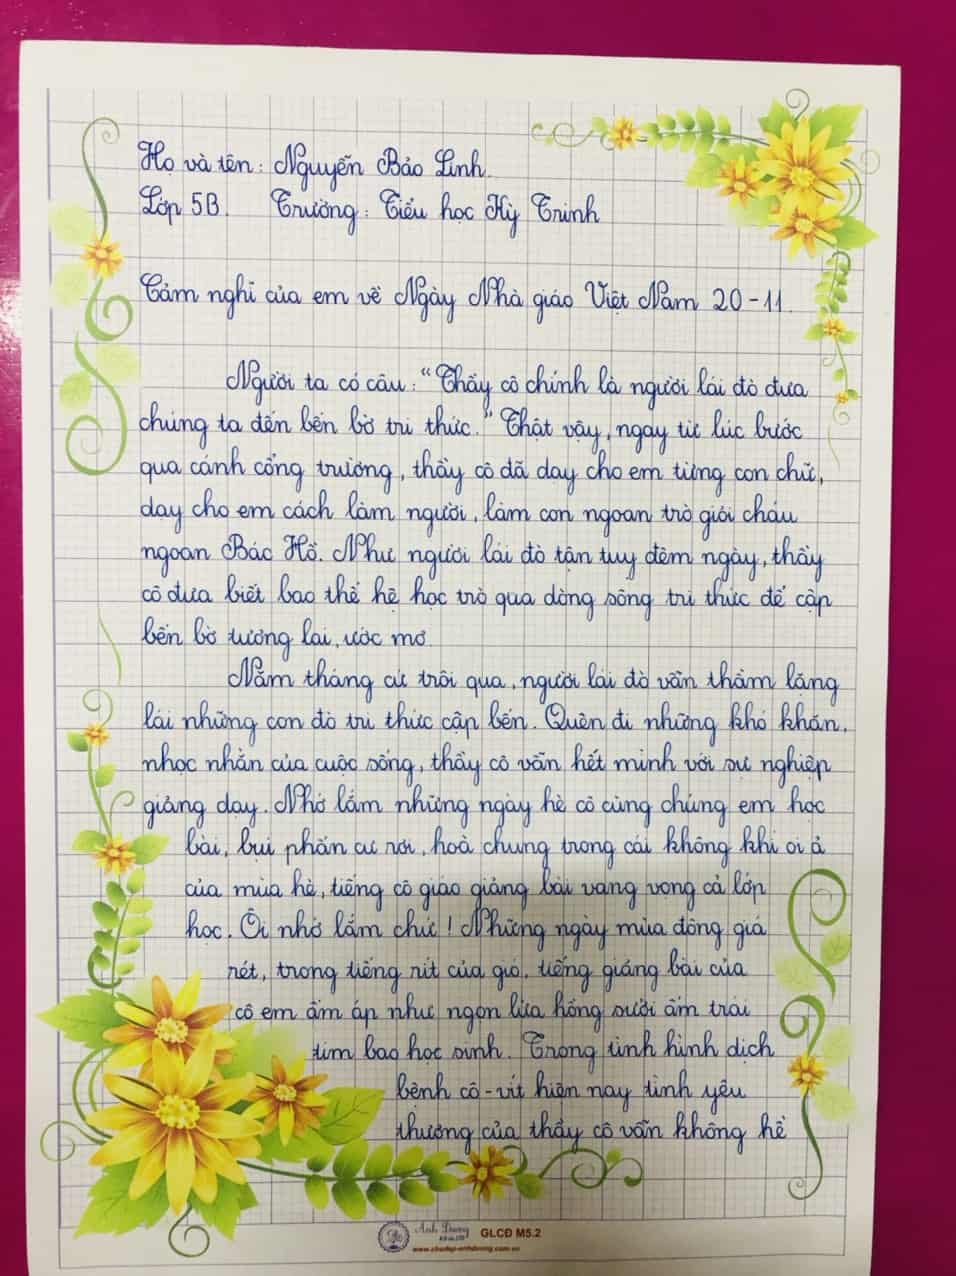 Họ và tên: Nguyễn Bảo Linh.
Lớp 5B. Trường: Tiểu học Kỳ Trinh
Cảm nghĩ của em về Ngày Nhà giáo Việt Nam 20-11.
Người ta có câu: "Thầy cô chính là người lái đò đưa
chúng ta đến bến bờ tri thức." Thật vậy, ngay từ lúc bước
qua cánh cổng trường, thầy cô đã dạy cho em từng con chữ,
dạy cho em cách làm người, làm con ngoan trò giỏi cháu
ngoan Bác Hồ. Như người lái đò tận tụy đêm ngày, thầy
cô đưa biết bao thế hệ học trò qua dòng sông tri thức để cập
bến bờ tương lai, ước mơ.
Năm tháng cứ trôi qua, người lái đò vẫn thầm lặng
lái những con đò tri thức cập bến. Quên đi những khó khăn,
nhọc nhằn của cuộc sống, thầy cô vẫn hết mình với sự nghiệp
giảng dạy. Nhớ lắm những ngày hè cô cùng chúng em học
bài, bụi phấn cứ rơi, hoà chung trong cái không khí oi ả
của mùa hè, tiếng cô giáo giảng bài vang vọng cả lớp
học. Ôi nhớ lắm chứ! Những ngày mùa đông giá
rét, trong tiếng rít của gió, tiếng giảng bài của
cô em ấm áp như ngọn lửa hồng sưởi ấm trái
tim bao học sinh. Trong tình hình dịch
bệnh cô-vít hiện nay tình yêu
thương của thầy cô vẫn không hề
Ánh Dương
GLCĐ M5.2
www.chudep-anhduong.com.vn